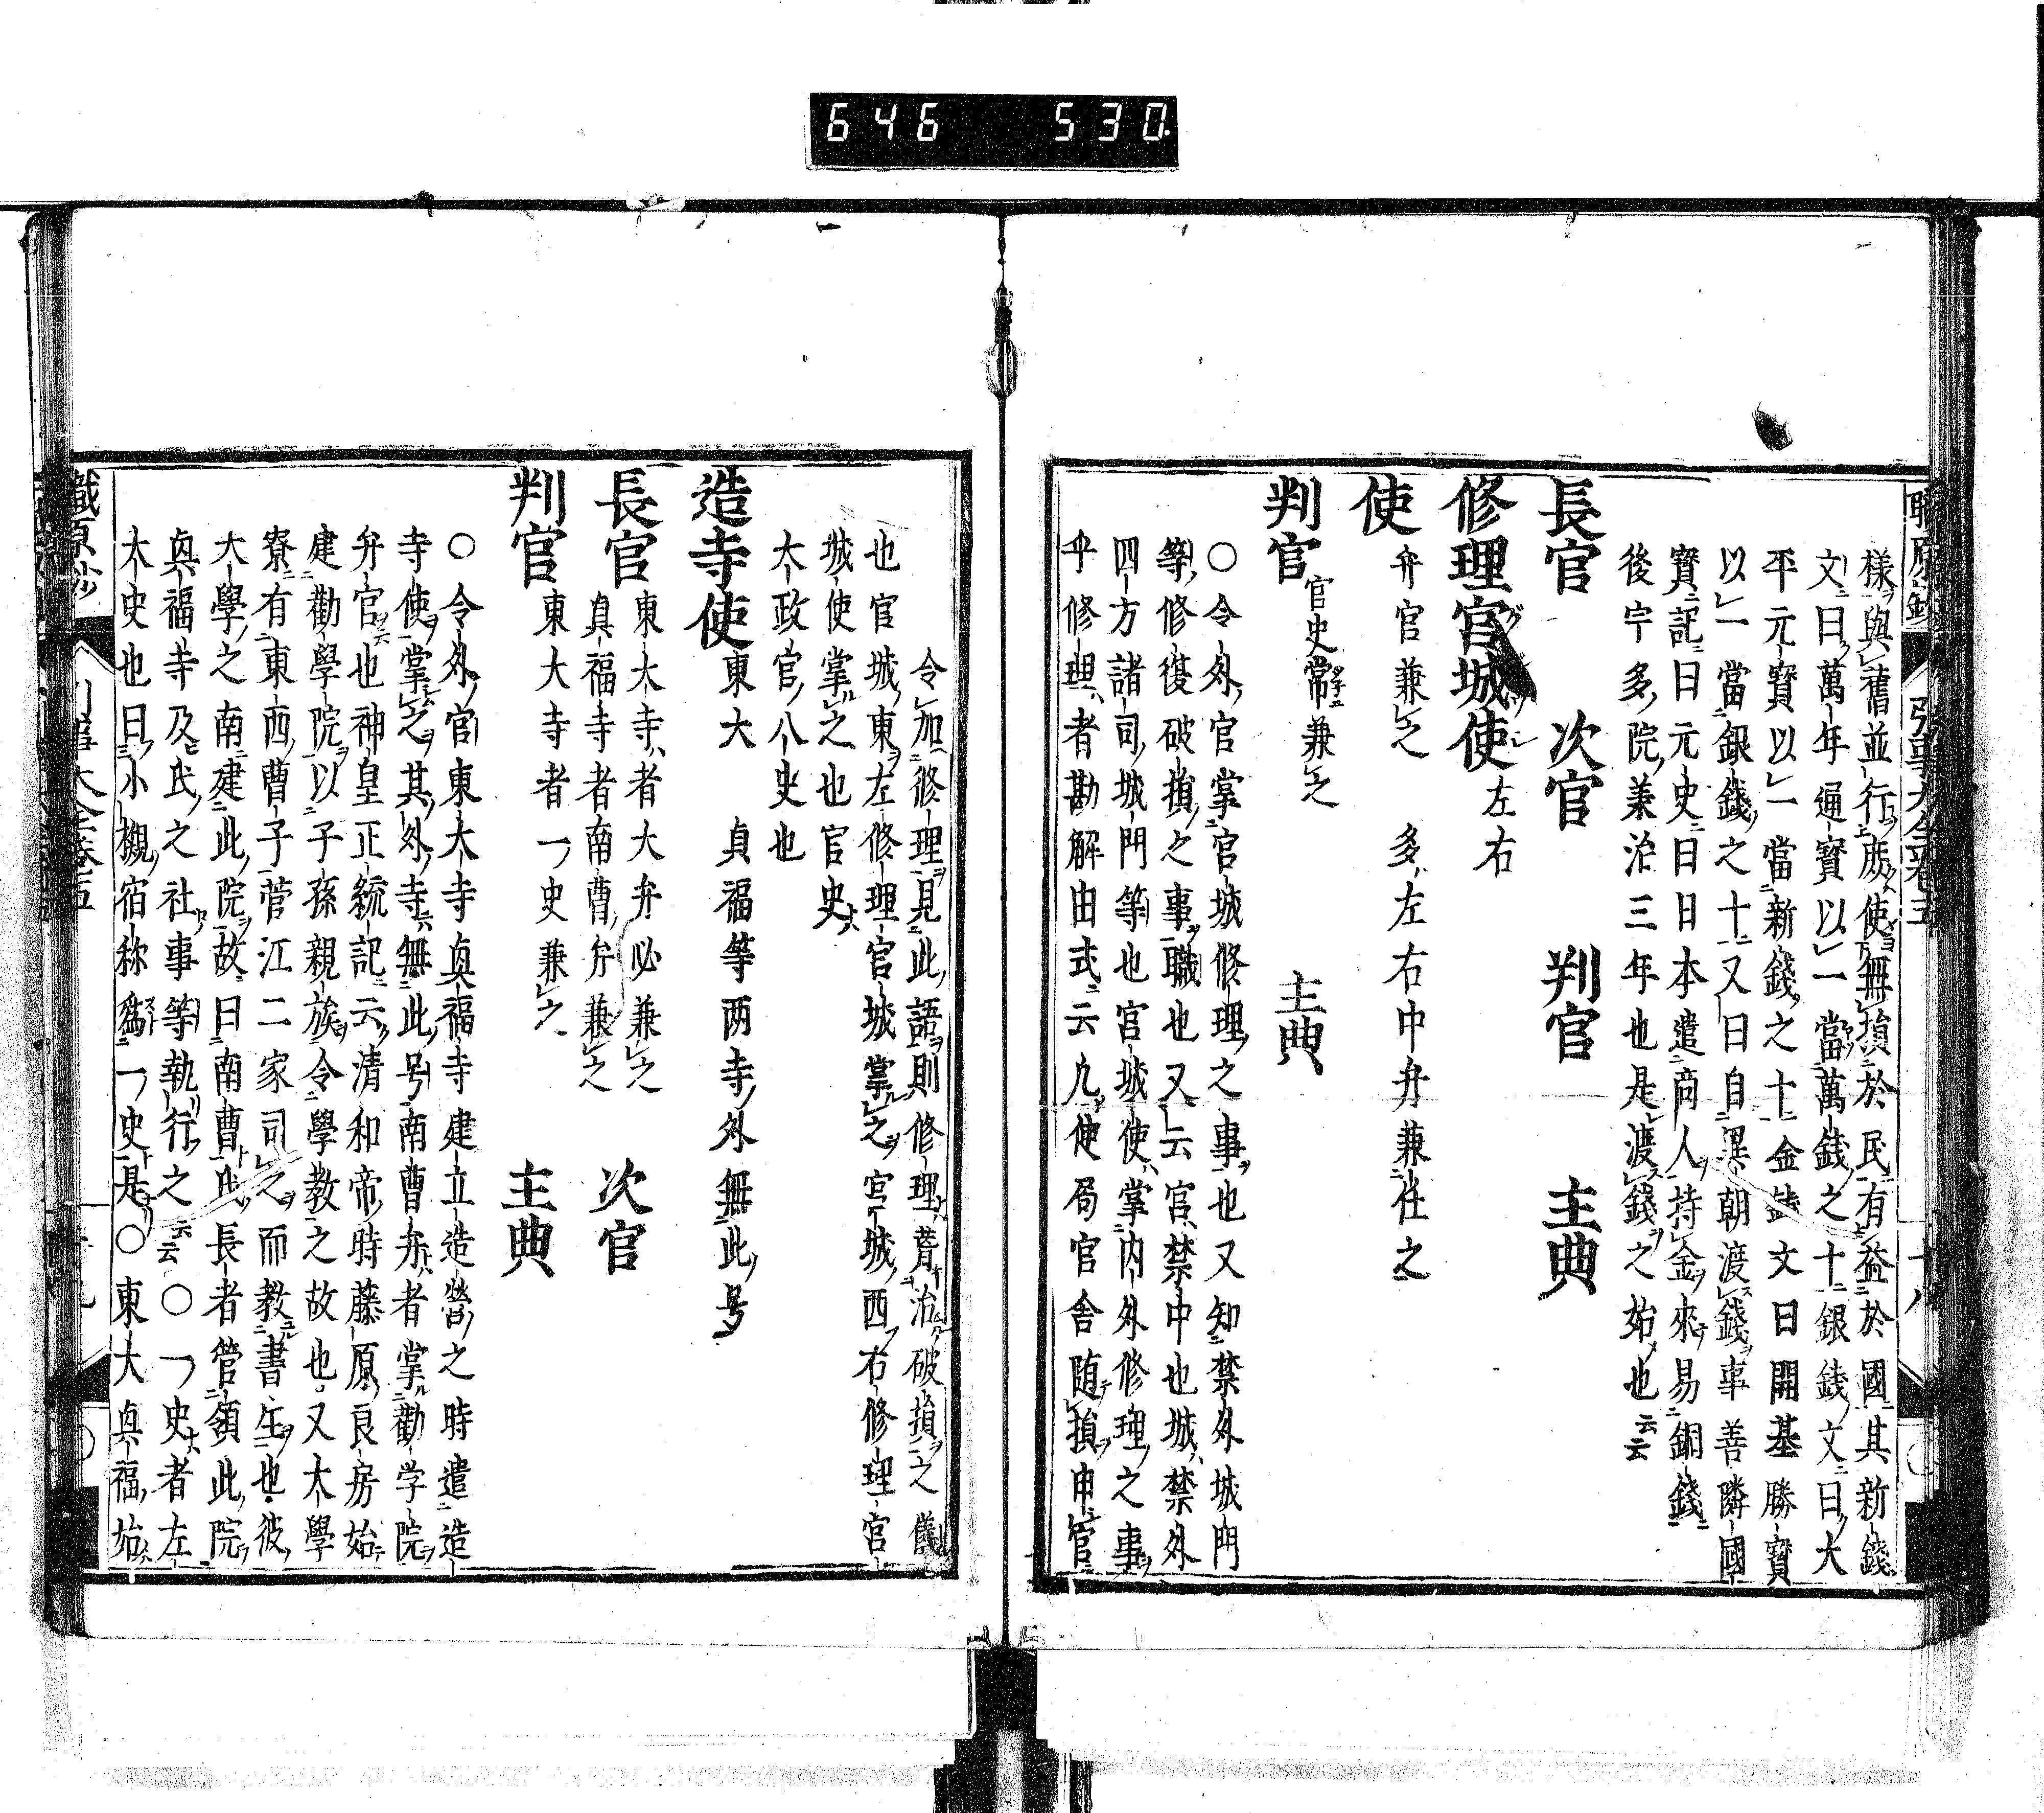 646 530
樣與舊並行庶使無損於民有益於國其新錢
文曰萬年通寳以一當萬錢之十銀錢文曰大
平元寳以一當新錢之十金錢文曰開基勝寳
以一當銀錢之十又曰自異朝渡錢事善隣國
寳記曰元史曰日本遣商人持金來易銅錢
後宇多院兼治三年也是渡錢之始也云云
長官 次官 判官 主典
修理官城使左右
使弁官兼之 多左右中弁兼任之
判官官史常兼之 主典
○令外官掌官城修理之事也又知禁外城門
等修復破損之事職也又云官禁中也城禁外
四方諸司城門等也官城使掌内外修理之事
乎修理者勘解由式云九使局官舍随損申官
令加修理見此語則修理葺治破損之儀
也官城東左修理官城掌之官城西右修理官
城使掌之也官史
大政官八史也
造寺使東大 貞福等两寺外無此号
長官東大寺者大弁必兼之 次官
具福寺者南曹弁兼之
判官東大寺者一史兼之 主典
○令外官東大寺真福寺建立造營之時遣造
寺使掌之其外寺無此号南曹弁者掌勸学院
弁官也神皇正統記云清和帝時藤原良房始
建勸學院以子孫親族令學教之故也又大學
寮有東西曹子菅江二家司之而教書生也彼
大學之南建此院故曰南曹氏長者管領此院
真福寺及氏之社事等執行之云云○一史者左
大史也曰小槻宿称爲一史是○東大真福始
職原抄